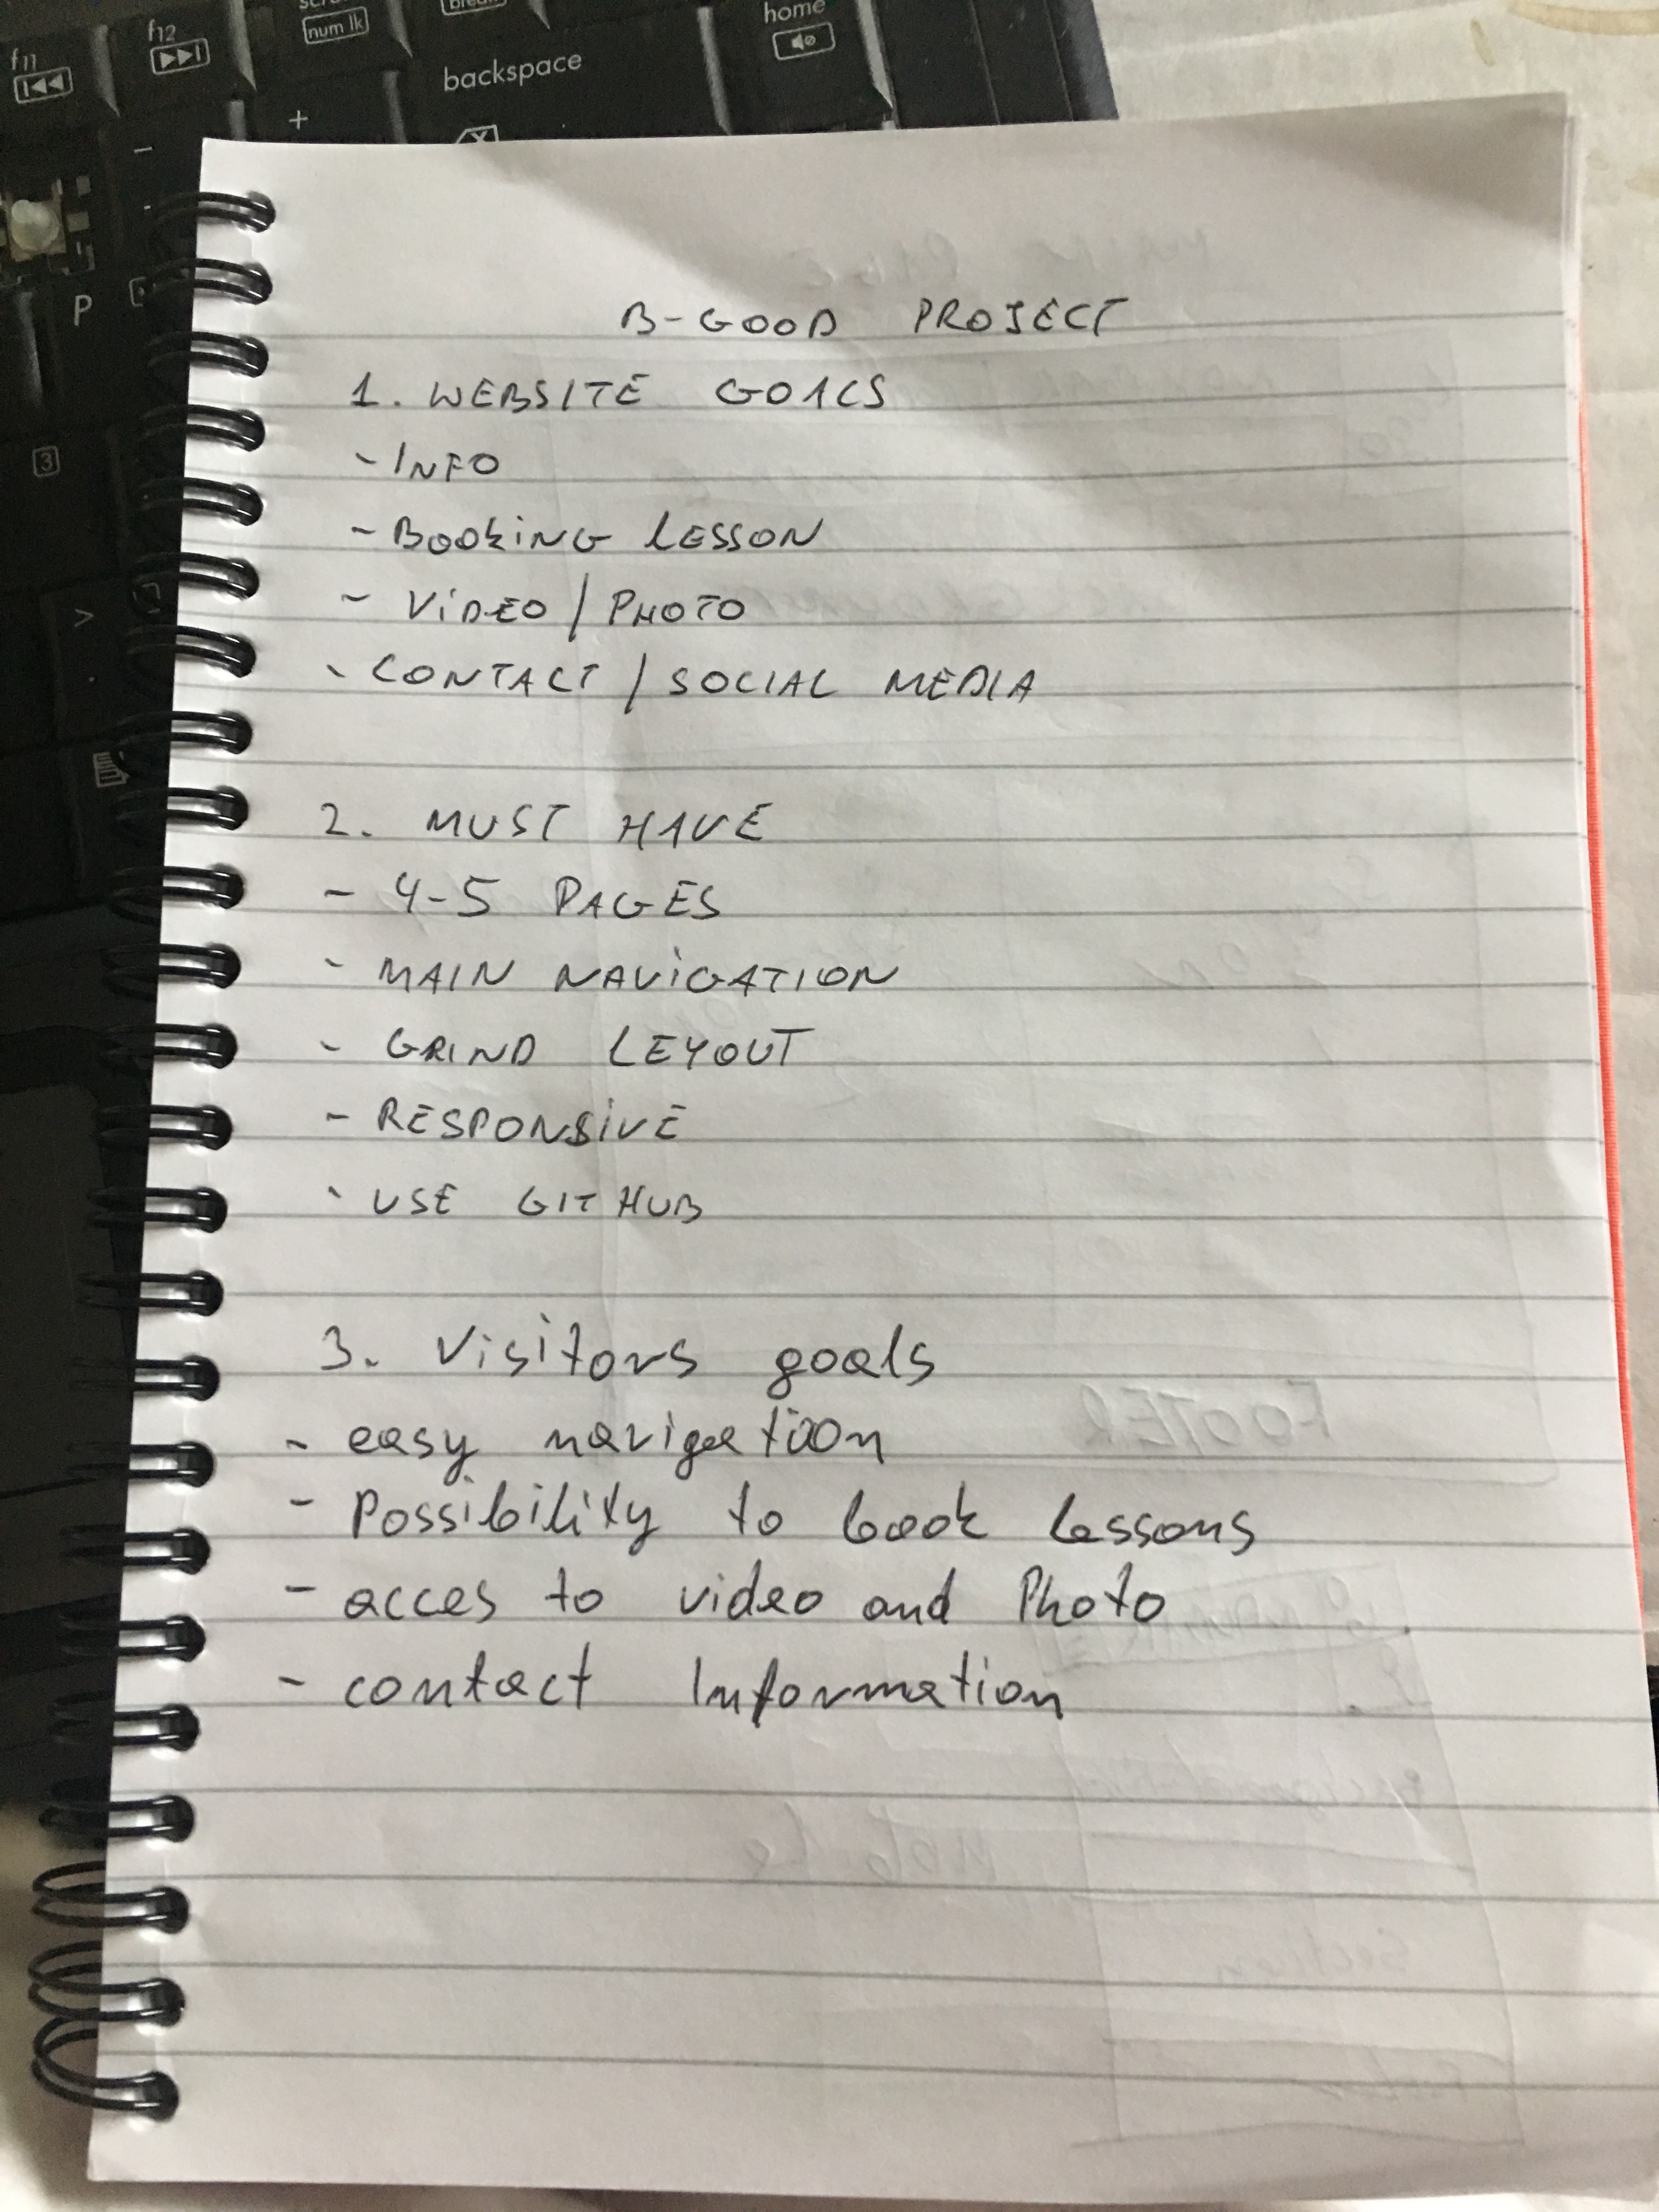 f11
f12
num lk
home
backspace
+
-
P
3
>
B-GOOD PROJECT
1. WEBSITE GOALS
- INFO
- BOOKING LESSON
- VIDEO / PHOTO
- CONTACT / SOCIAL MEDIA
2. MUST HAVE
- 4-5 PAGES
- MAIN NAVIGATION
- GRIND LEYOUT
- RESPONSIVE
- USE GIT HUB
3. Visitors goals
- easy navigation
- Possibility to book lessons
- acces to video and Photo
- contact Information
FOOTER